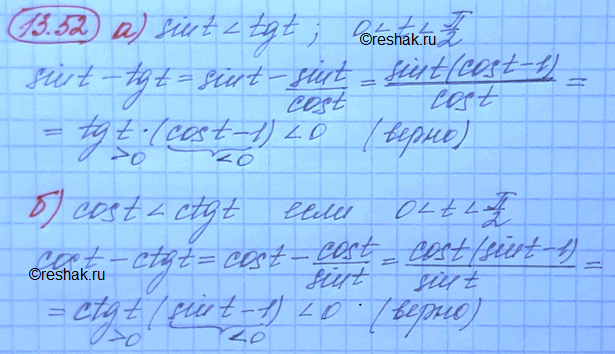 13.52 а) sint < tgt ; 0 < t < π/2
sint - tgt = sint - sint/cost = sint(cost-1)/cost =
= tgt · (cost-1) < 0 (верно)
>0 <0
©reshak.ru
б) cost < ctgt если 0 < t < π/2
cost - ctgt = cost - cost/sint = cost(sint-1)/sint =
©reshak.ru
= ctgt (sint-1) < 0 · (верно)
>0 <0